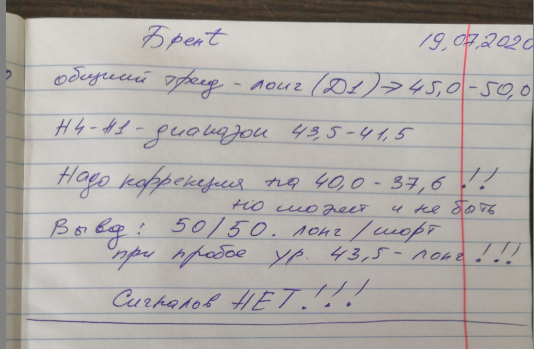 Брент 19,07,2020
общий тренд - лонг (D1) → 45,0 - 50,0
H4-H1 - диапазон 43,5 - 41,5
Надо коррекция на 40,0 - 37,6 !!
но может и не быть
Вывод: 50/50. лонг/шорт
при пробое ур. 43,5 - лонг !!!
Сигналов НЕТ!!!